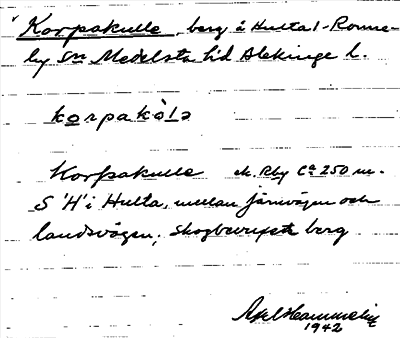 Korpakulle, berg å Hulta 1 - Ronne-
by sn Medelsta hd Blekinge l.
korpakòlə
Korpakulle ek. Rby Ca 250 m.
S 'H' i Hulta, mellan järnvägen och
landsvägen; skogbevuxet berg
Axel Hammelin
1942